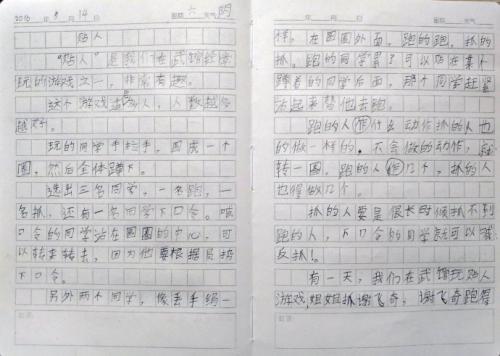 2016年8月14日 星期六 天气阴
贴人
"贴人"是我们在武馆经常
玩的游戏之一,非常有趣。
这个游戏适多人,人数越多
越好。
玩的同学手拉手,围成一个
圈,然后全体蹲下。
选出三名同学,一名跑,一
名抓,还有一名同学下口令。喊
口令的同学站在圆圈的中心,可
以转来转去,因为他要根据局势
下口令。
另外两个同学,像丢手绢一
年 月 日 星期 天气
样,在圆圈外面,跑的跑,抓的
抓。跑的同学累了可以贴在某个
蹲着的同学后面,那个同学赶紧
站起来替他去跑。
跑的人作什么动作抓的人也
的做一样的。不会做的动作,就
转一圈,跑的人作几个,抓的人
也得做几个。
抓的人要是很长时候抓不到
跑的人,下口令的同学就可以喊
反抓!。
有一天,我们在武馆玩贴人
游戏,姐姐抓谢飞奇。谢飞奇跑得